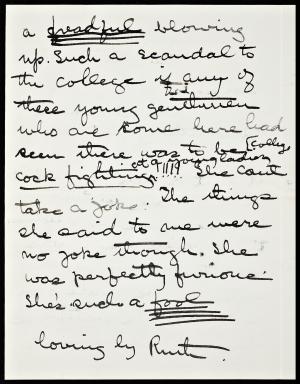 a dreadful blowing
up. Such a scandal to
the college if any of
these young gentlemen
who are come here had
seen there was to be
cock fighting at a young ladies college!!!!? She cant
take a joke. The things
she said to me were
no joke though. She
was perfectly furious.
She's such a fool
loving by Ruth.